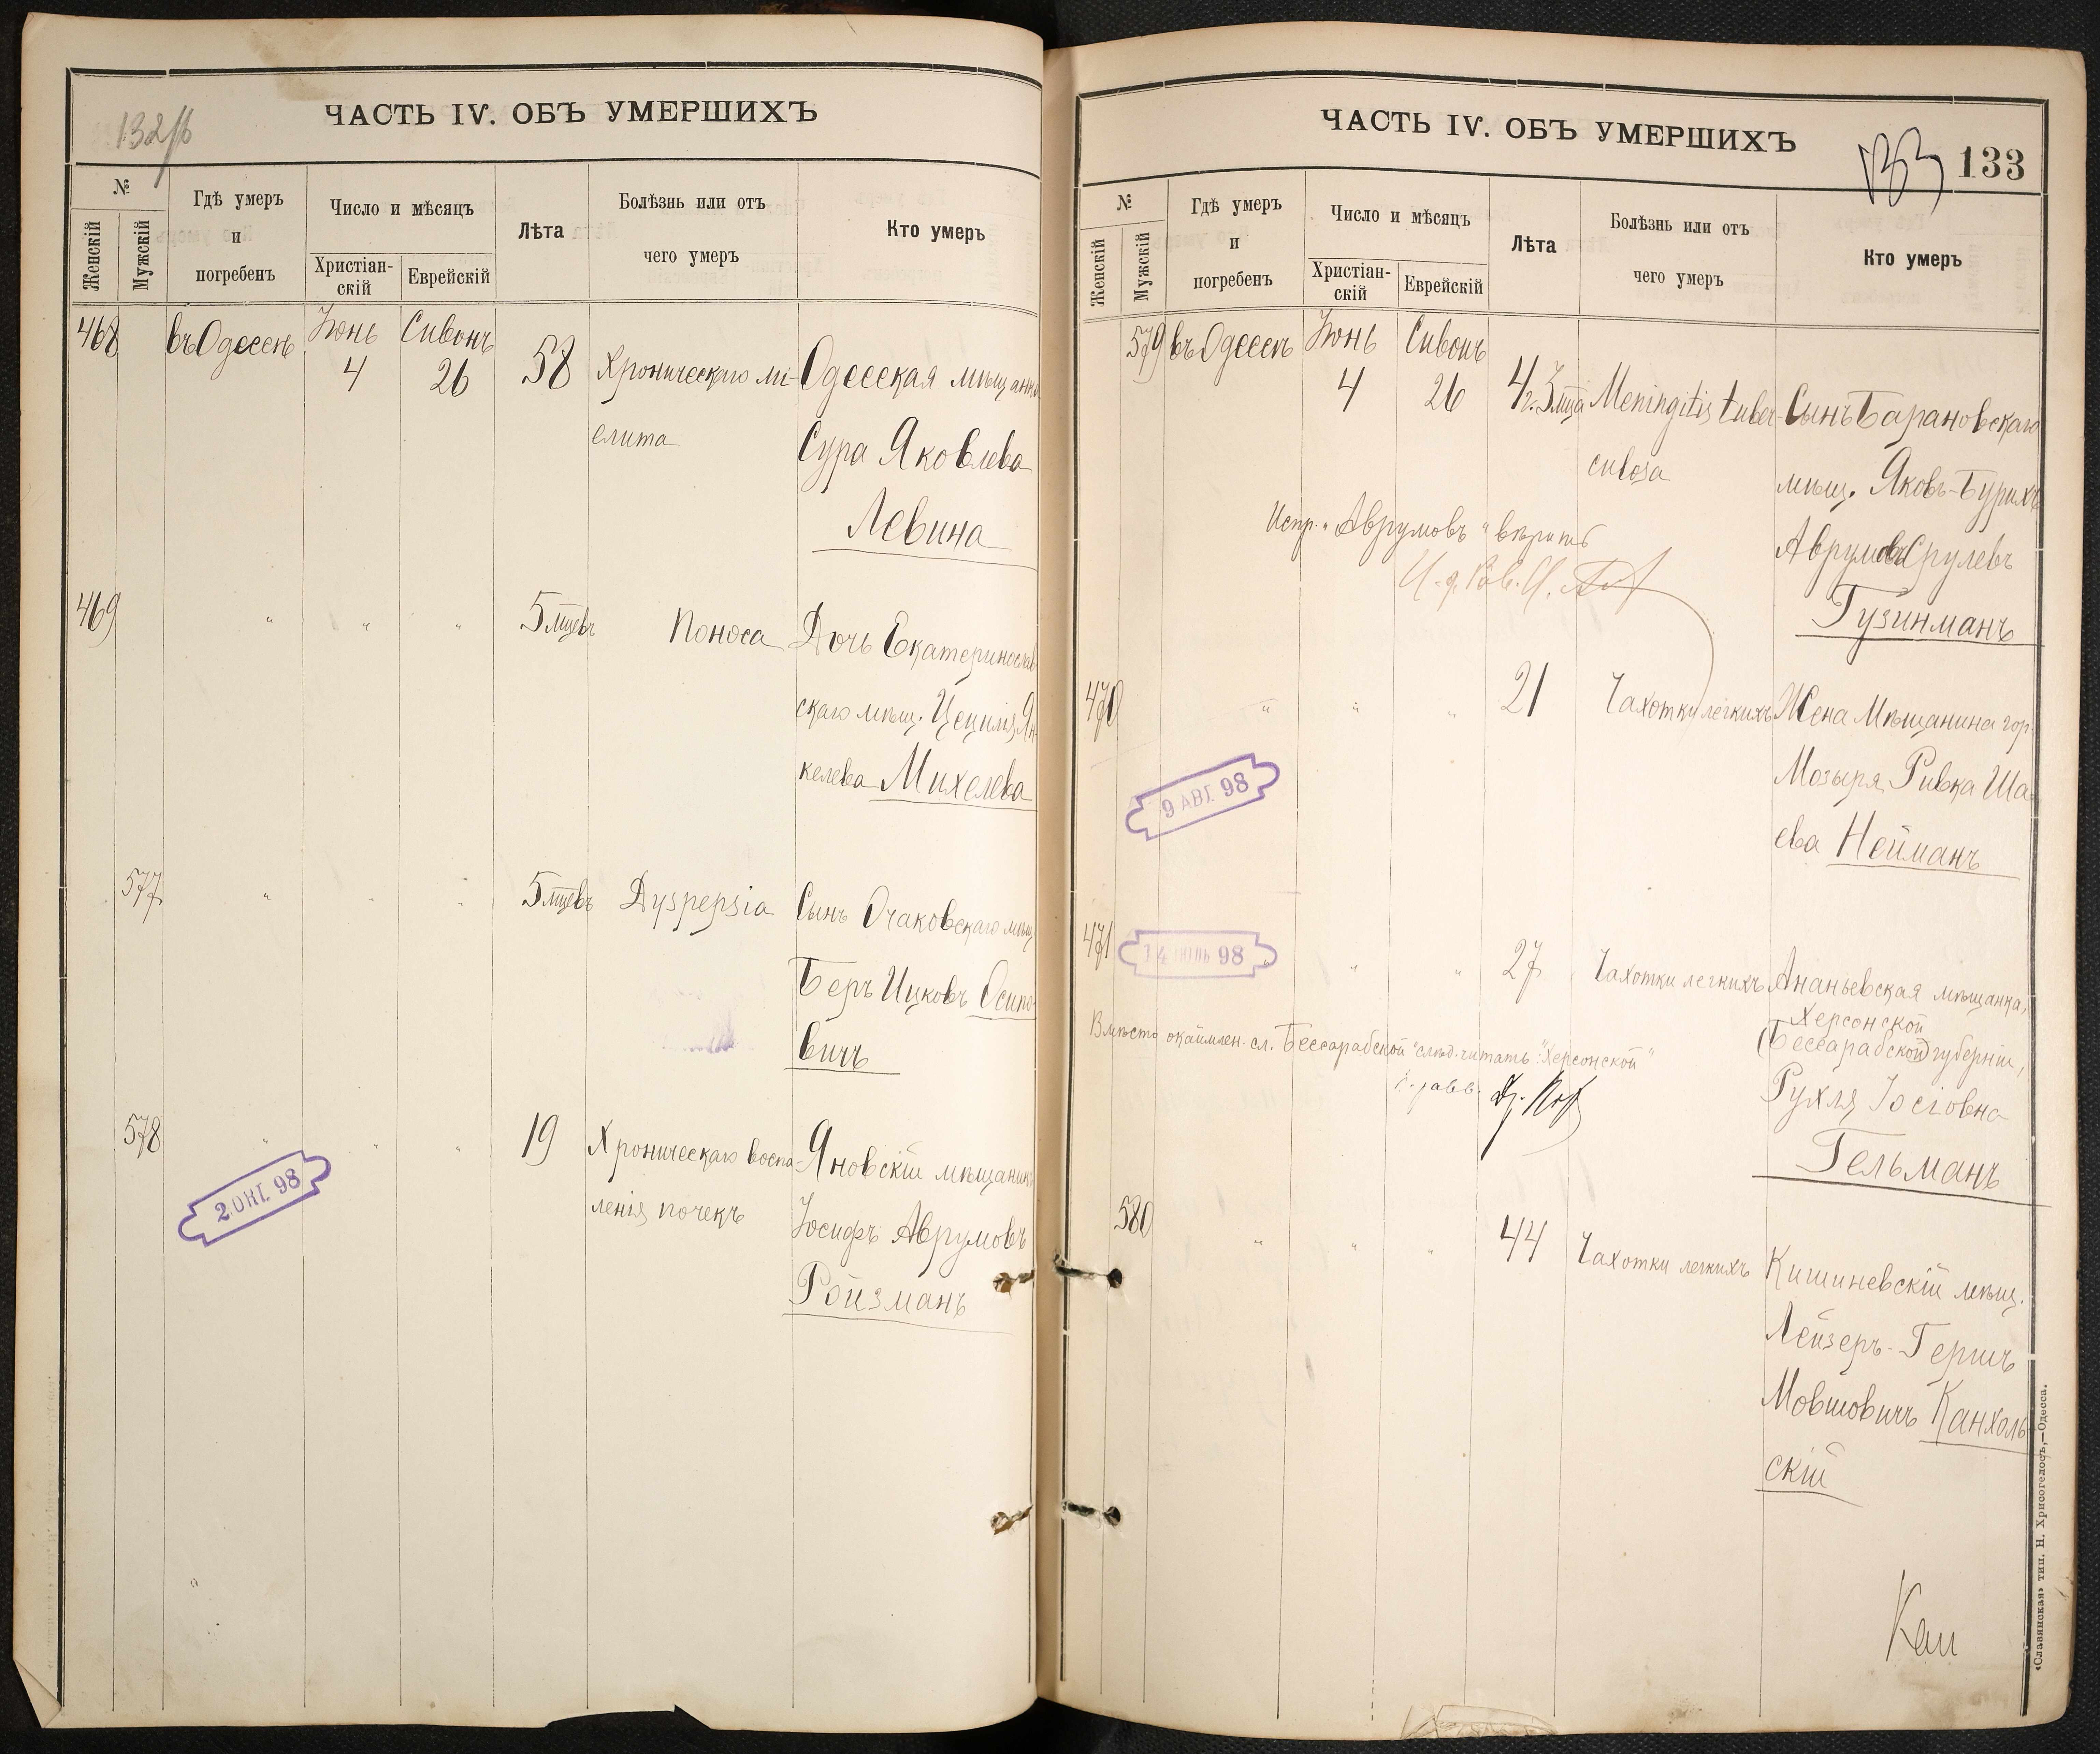 132/б
ЧАСТЬ IV. ОБЪ УМЕРШИХЪ
№
Женскій
Мужскій
Гдѣ умеръ
и
погребенъ
Число и мѣсяцъ
Христіан-
скій
Еврейскій
Лѣта
Болѣзнь или отъ
чего умеръ
Кто умеръ
468 въ Одессѣ Іюнь 4 Сивонъ 26 58 Хроническаго мі- Одесская мѣщанка
елита Сура Яковлева
Левина
469 " " " 5 мцевъ Поноса Дочь Екатеринослав-
скаго мѣщ. Цецилія Ян-
келева Михелева
577 " " " 5 мцевъ Dyspepsia Сынъ Очаковскаго мѣщ
Беръ Ицковъ Осипо-
вичъ
578 " " " 19 Хроническаго воспа- Яновскій мѣщанинъ
ленія почекъ Іосифъ Аврумовъ
Ройзманъ
2 ОКТ. 98
ЧАСТЬ IV. ОБЪ УМЕРШИХЪ
133 133
№
Женскій
Мужскій
Гдѣ умеръ
и
погребенъ
Число и мѣсяцъ
Христіан-
скій
Еврейскій
Лѣта
Болѣзнь или отъ
чего умеръ
Кто умеръ
579 въ Одессѣ Іюнь 4 Сивонъ 26 4 г. 3 мца Meningitis tuber- Сынъ Барановскаго
culosa мѣщ. Яковъ-Бурихъ
Испр. "Аврумовъ" вѣрить Аврумовъ Срулевъ
И. д. Рав.
Гузинманъ
470 " " " 21 Чахотки легкихъ Жена Мѣщанина гор.
Мозыря Ривка Ша-
ева Нейманъ
9 АВГ. 98
471 " " " 27 Чахотки легкихъ Ананьевская мѣщанка,
14 ІЮЛЬ 98
Херсонской
(Бессарабской) губерніи,
Вмѣсто окаймлен. сл. Бессарабской "слѣд. читать: "Херсонской"
Рухля Іосіовна
Гельманъ
580 " " " 44 Чахотки легкихъ Кишиневскій мѣщ.
Лейзеръ-Гершъ
Мовшовичъ Канхоль
скій
«Славянская» тип. Н. Хрисогелосъ,—Одесса.